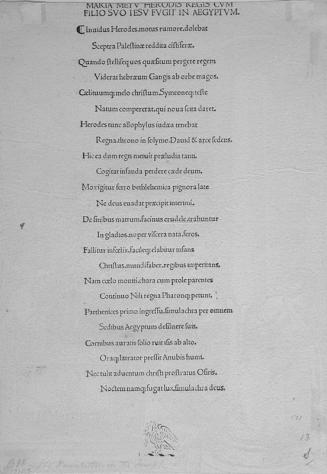 MARIA METV HERODIS REGIS CVM
FILIO SVO IESV FVGIT IN AEGYPTVM.
Inuidus Herodes, motus rumore, dolebat
Sceptra Palestinæ reddita
Quando stellisequos quæsitum pergere regem
Viderat hebræum Gangis ab orbe magos.
christum, Symeoneq; teste
Natum compererat, qui noua scita daret.
Herodes tunc allophylus iudæa tenebat
Regna, throno in solymo, Dauid & arce sedens.
Hic ea dum regis metuit præludia tanti,
Cogitat infanda perdere cæde deum.
Mox igitur ferro bethlehemica pignora late
Ne deus euadat præcipit interimi.
De sinibus matrum, facinus crudele, trahuntur
In gladios, nuper viscera nata, feros.
Fallitur infœlix, facileq; elabitur infans
Christus, mundifaber, regibus imperitans.
Nam cœlo moniti, chara cum prole parentes
Continuo Nili regna Pharonq; petunt,
Parthenices primo ingressu, simulachra per omnem
Sedibus Aegyptum desiluere suis.
Cornibus auratis solio ruit isis ab alto,
Oraq; latrator pressit Anubis humi.
Nec tulit aduentum christi prostratus Osiris,
Noctem namq; fugat lux, simulachra deus.